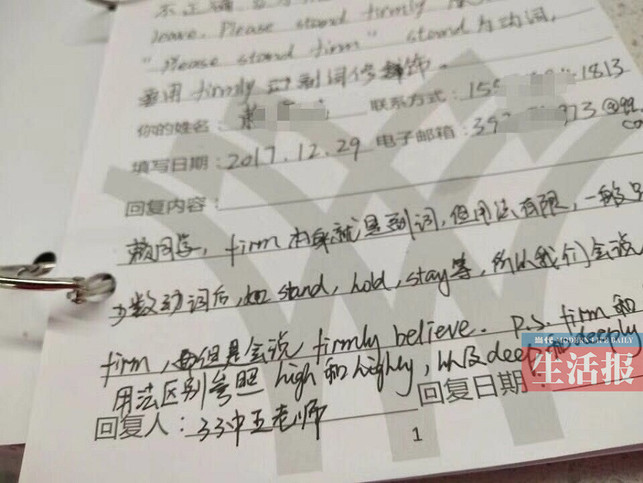 不正确
leave. Please stand firmly
"Please stand firm" stand为动词,
要用 firmly 副词修饰。
你的姓名: 联系方式:155 1813
填写日期:2017.12.29 电子邮箱:392 973@qq.co
回复内容:
同学,firm本身就是副词,但用法有限,一般只
少数动词后,如stand, hold, stay等,所以我们会说
firm,但是会说 firmly believe. P.S. firm 和
用法区别参照 high 和 highly,以及deep和deeply
回复人:33中王老师 回复日期
1
当代 MODERN LIFE DAILY
生活报